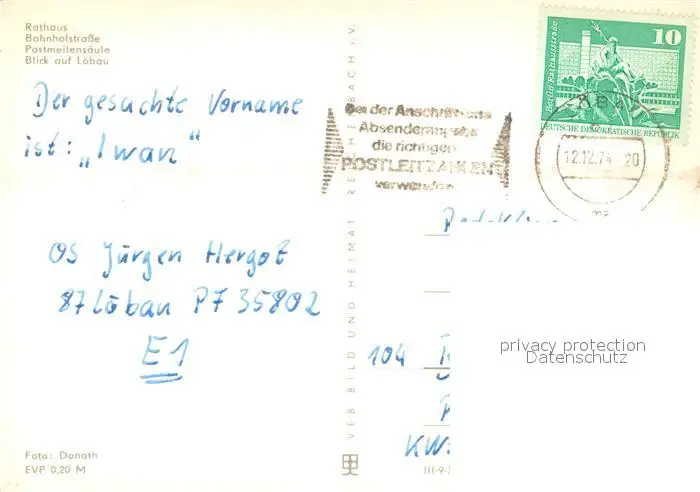 Rathaus
Bahnhofstraße
Postmeilensäule
Blick auf Löbau
Der gesuchte Vorname
ist: „Iwan"
OS Jürgen Hergot
87 Löbau PF 35802
E1
Foto: Donath
EVP 0,20 M
VEB BILD UND HEIMAT REICHENBACH I.V.
Bei der Anschrift und
Absenderangabe
die richtigen
POSTLEITZAHLEN
verwenden
10
Berlin, Rathausstraße
DEUTSCHE DEMOKRATISCHE REPUBLIK
12.12.74 20
104
KW:
III-9-
privacy protection
Datenschutz